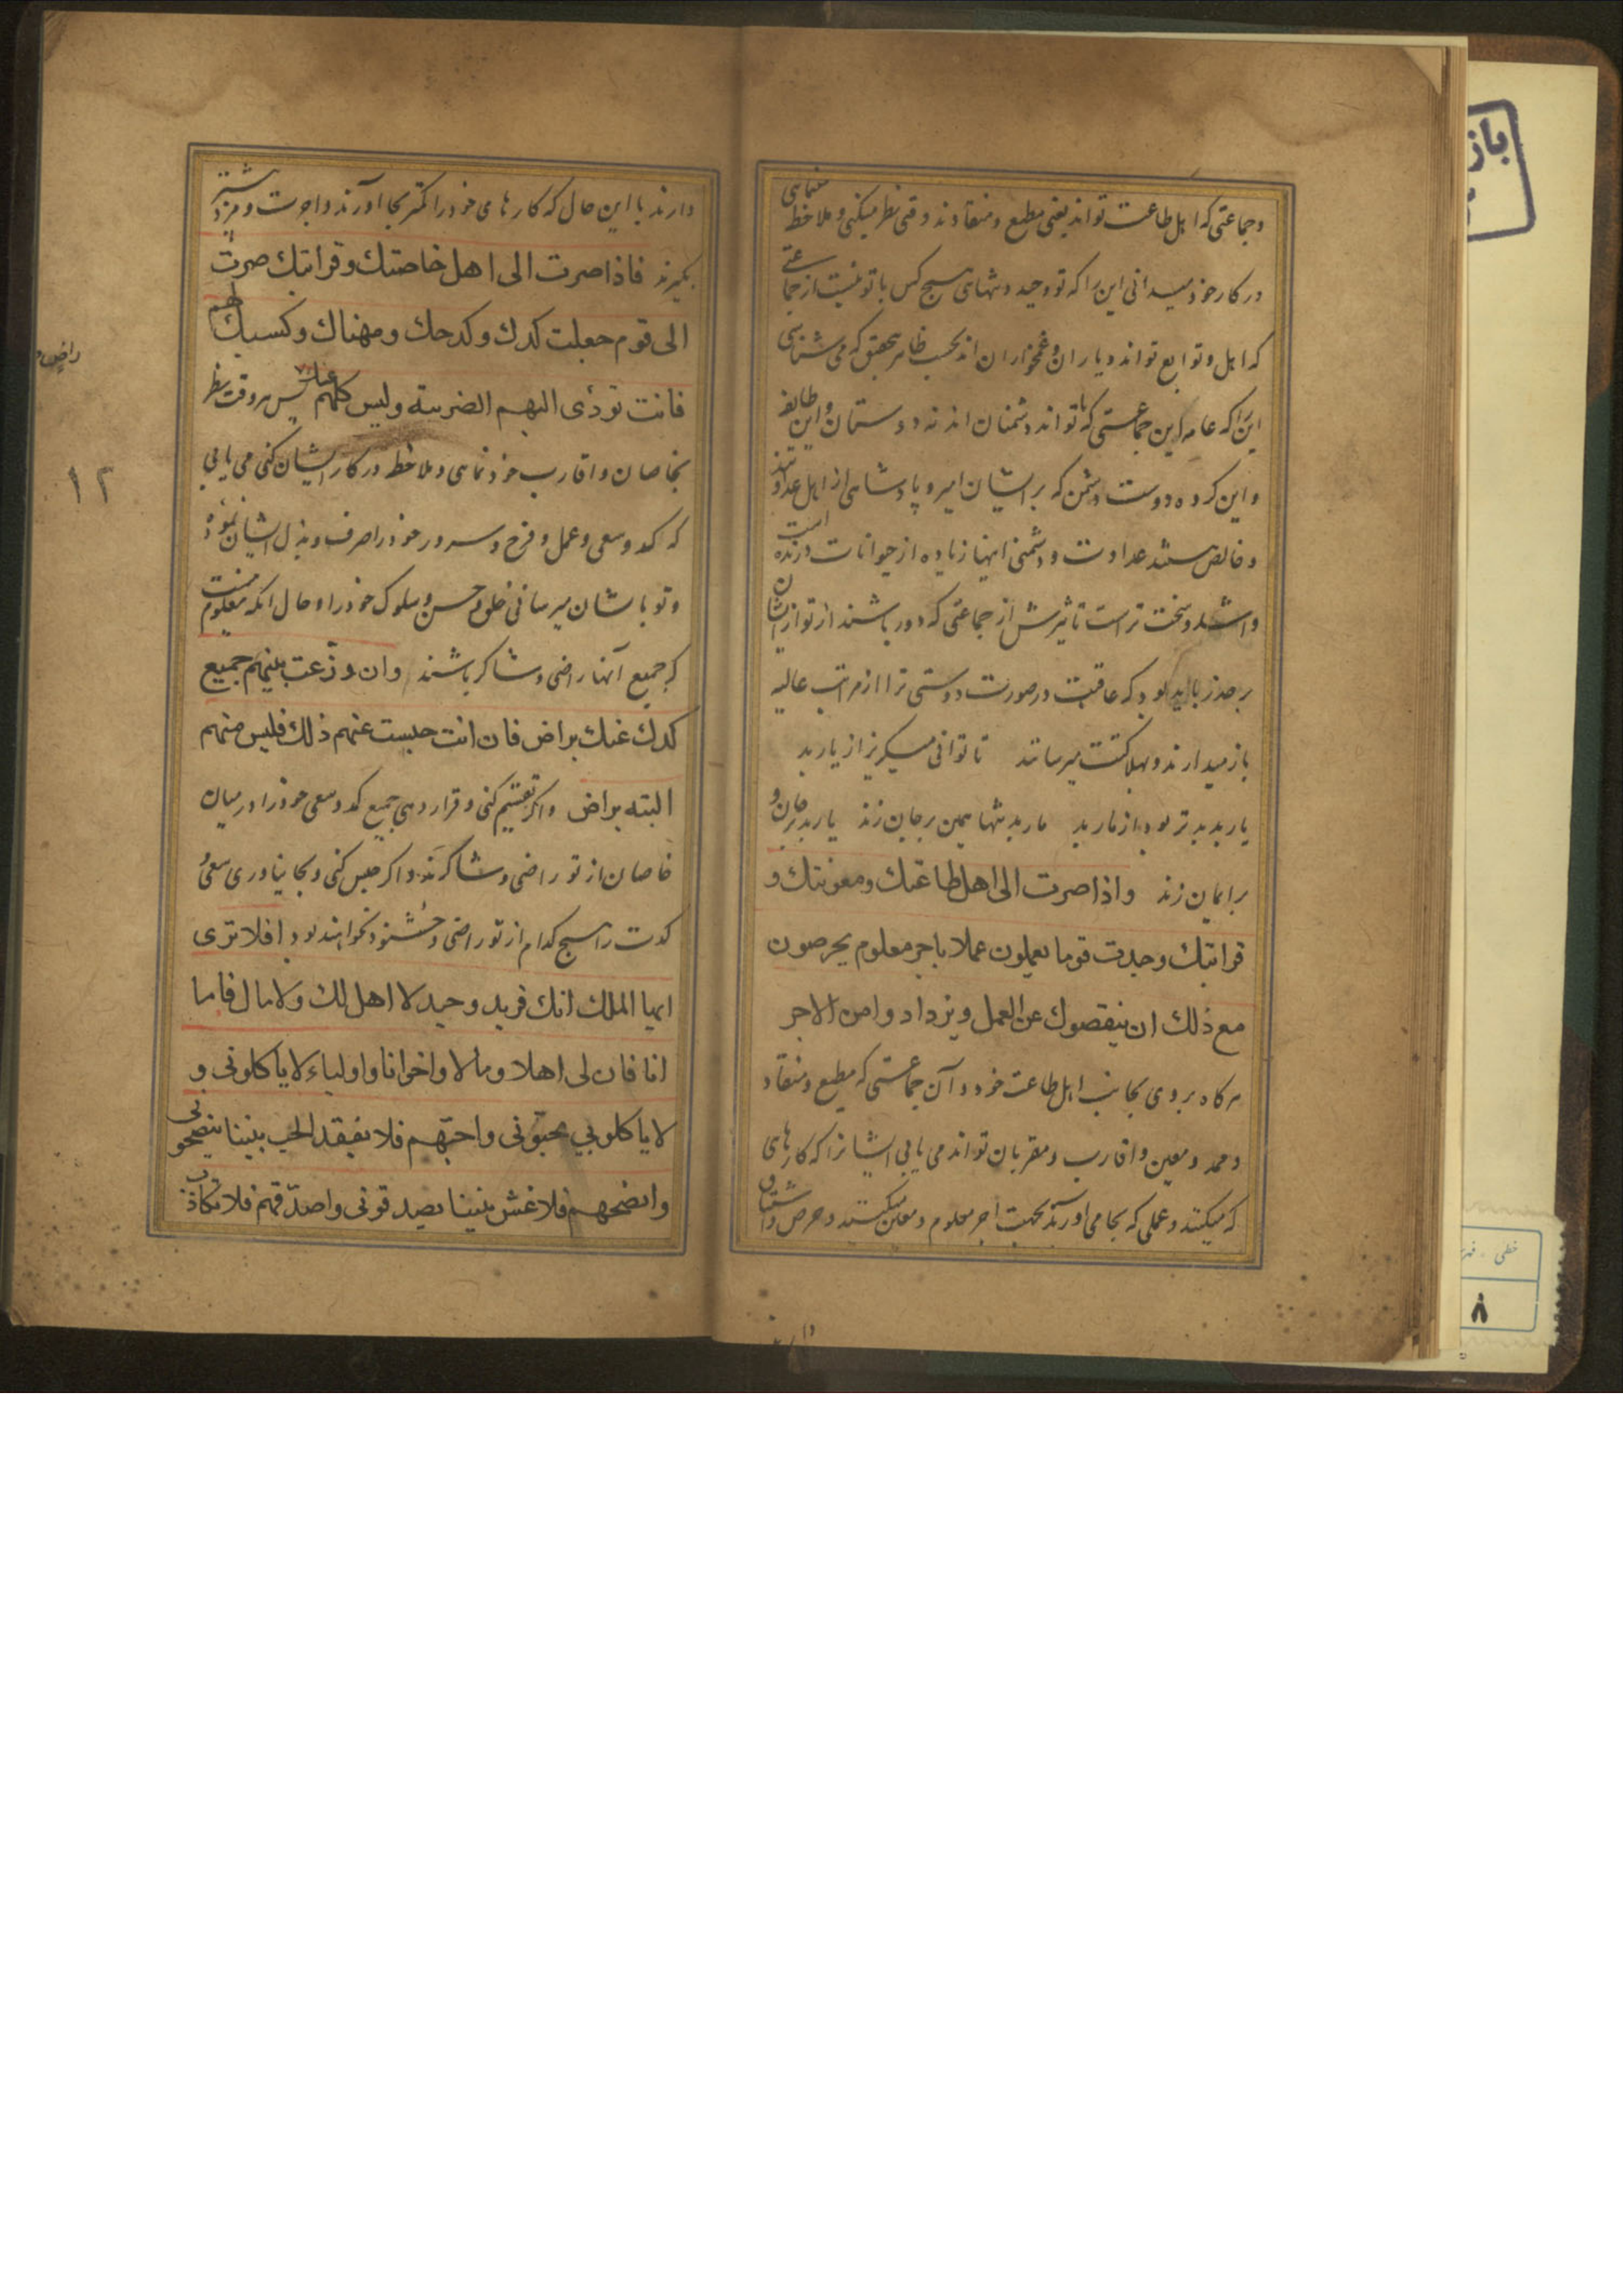 وجماعتی که اهل طاعت تواند یعنی مطیع و منقادند وقتی نظر میکنی و ملاحظه مینمایی
در کار خود میدانی این را که تو وحید و تنهای هیچ کس با تو نیست از جماعتی
که اهل و توابع تواند و یاران و غمخواران اند بحسب ظاهر بتحقیق که می شناسی
این را که عامه این جماعتی که با تواند دشمنان اند نه دوستان و این طایفه
و این کرده دوست دشمن که بر ایشان امیر و پادشاهی از اهل عداوتند
و خالص هستند عداوت و دشمنی اینها زیاده از حیوانات درنده است
واشد و سخت تر است تاثیرش از جماعتی که دور باشند از تو از ایشان
بر حذر باید بود که عاقبت در صورت دوستی ترا از مراتب عالیه
باز میدارند و بهلاکتت میرسانند تا توانی میگریز از یار بد
یار بد بدتر بود از مار بد مار بد تنها همین بر جان زند یار بد بر جان و
بر ایمان زند واذا صرت الی اهل طاعتك ومعونتك و
قرابتك وجدت قوما یعملون عملا باجر معلوم یحرصون
مع ذلك ان ینقصوك عن العمل ویزدادوا من الاجر
هرکاه بروی بجانب اهل طاعت خود و آن جماعتی که مطیع و منقاد
و ممد و معین و اقارب و مقربان تواند می یابی ایشانرا که کارهای
که میکنند و عملی که بجا می آورند بجهت اجر معلوم و معین میکنند و حرص و اشتیاق
دارند
دارند با این حال که کارهای خود را کمتر بجا آورند و اجرت و مزد بیشتر
بگیرند فاذا صرت الی اهل خاصتك وقرابتك صرت
الی قوم جعلت کدك وکدحك ومهناك وکسبك لهم
فانت تؤدی الیهم الضریبة ولیس کلهم عنك پس هر وقت نظر
بخاصان و اقارب خود نمایی و ملاحظه در کار ایشان کنی می یابی
که کد و سعی و عمل و فرح و سرور خود را صرف و بذل ایشان نموده
و تو با شان میرسانی خلق حسن و سلوک خود را و حال آنکه معلوم نیست
که جمیع آنها راضی و شاکر باشند وان وزعت بینهم جمیع
کدك عنك براض فان انت حبست عنهم ذلك فلیس منهم
البته براض واکر تقسیم کنی و قرار دهی جمیع کد و سعی خود را در میان
خاصان از تو راضی و شاکرند و اکر حبس کنی و بجا نیاوری سعی و
کدت را هیچ کدام از تو راضی و خشنود نخواهند بود افلا تری
ایها الملك انك فرید وحید لا اهل لك ولا مال فاما
انا فان لی اهلا ومالا واخوانا واولیاء لا یاکلونی و
لا یاکلو بی یحبّونی واحبّهم فلا یفقد الحب بیننا ینصحونی
وانصحهم فلا غش بیننا یصدقونی واصدّقهم فلا تکاذب
راض
۱۲
باز
خطی
۸